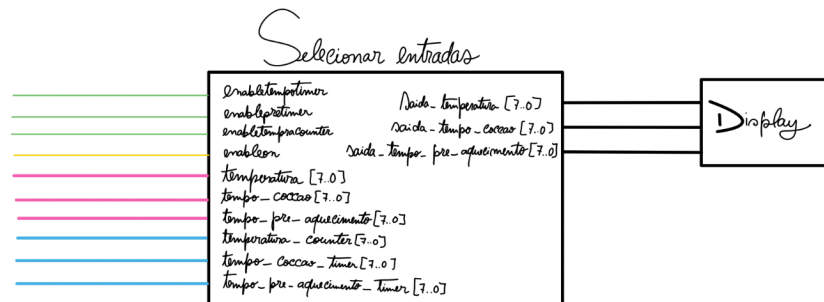 Selecionar entradas
enabletempotimer
enablepretimer
enabletempracounter
enableon
temperatura [7..0]
tempo_coccao [7..0]
tempo_pre_aquecimento [7..0]
temperatura_counter [7..0]
tempo_coccao_timer [7..0]
tempo_pre_aquecimento_timer [7..0]
Saida_temperatura [7..0]
saida_tempo_coccao [7..0]
saida_tempo_pre_aquecimento [7..0]
Display